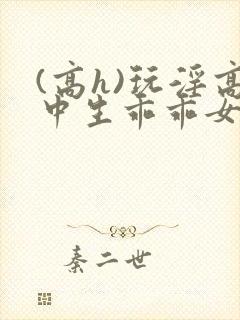 (高h)玩淫高
中生乖乖女
秦二世